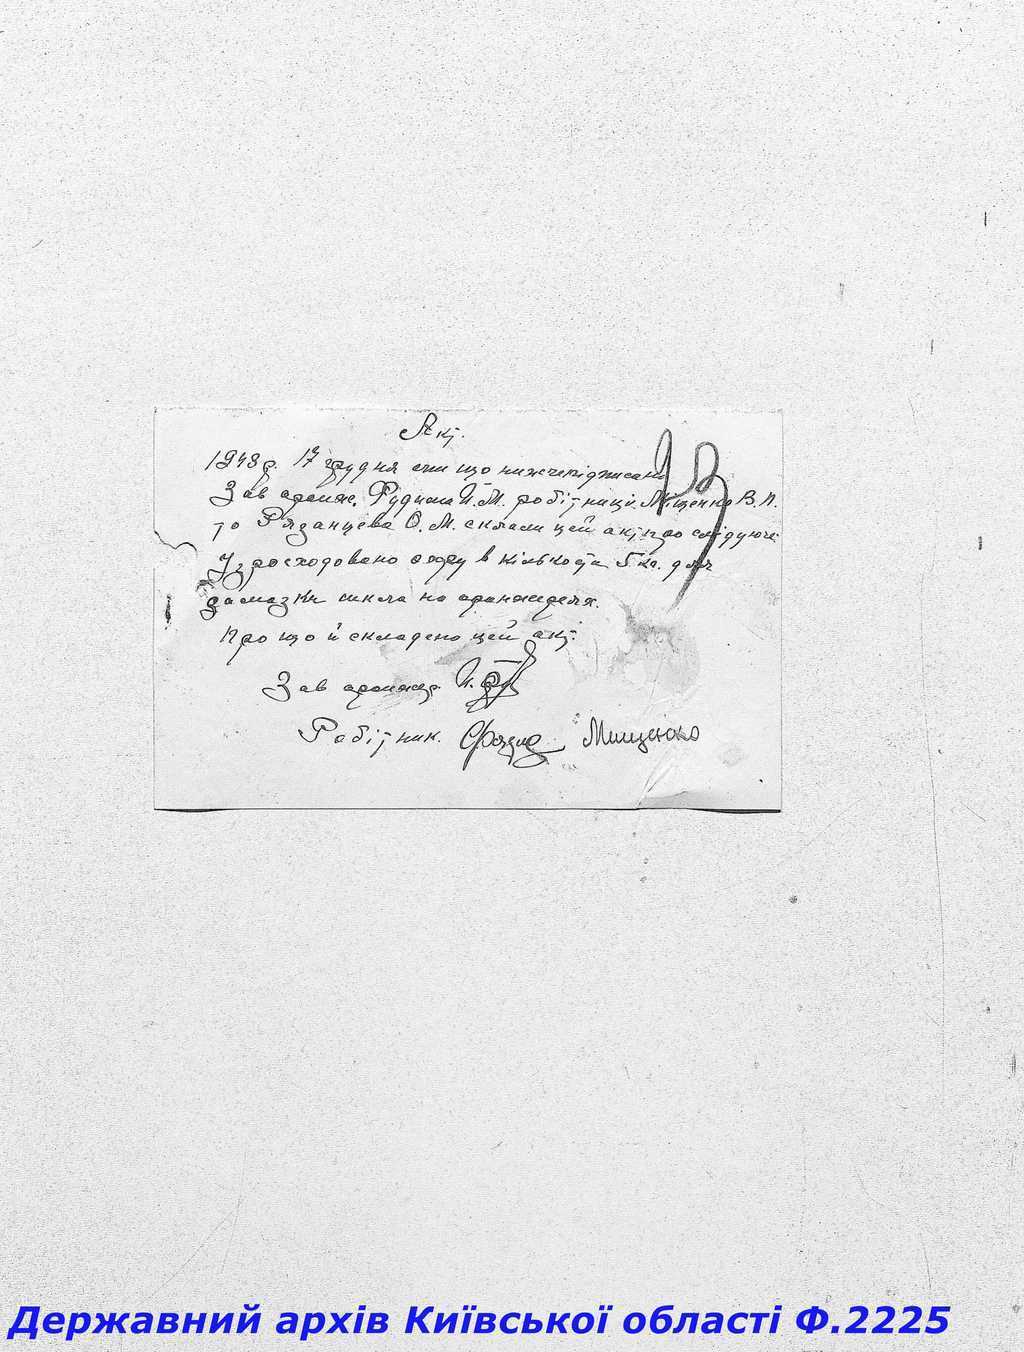 Акт.
1943 р. 17 грудня ми що нижчепідписані
Зав оранж. Рудина Й.М. робітниці Міщенко В.П.
то Рязанцева О.М. склали цей акт про слідуюче
Ізросходовано в кількости 5 кг. для
замазки шкла на оранжереях.
Про що й складено цей акт.
Зав оранжер. Й.
Робітник. Мищенко
Державний архів Київської області Ф.2225